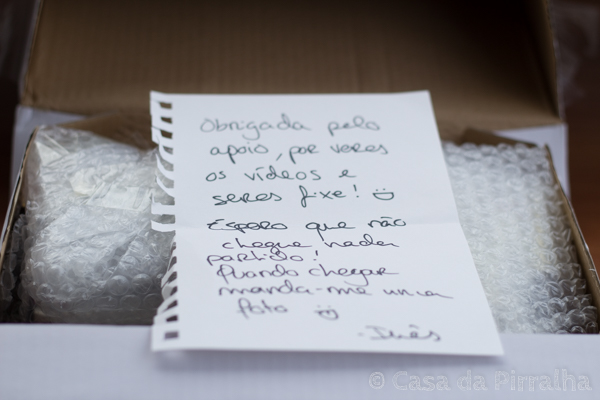 Obrigada pelo
apoio, por veres
os vídeos e
seres fixe! :)
Espero que não
chegue nada
partido!
Quando chegar
manda-me uma
foto :)
- Inês
© Casa da Pirralha